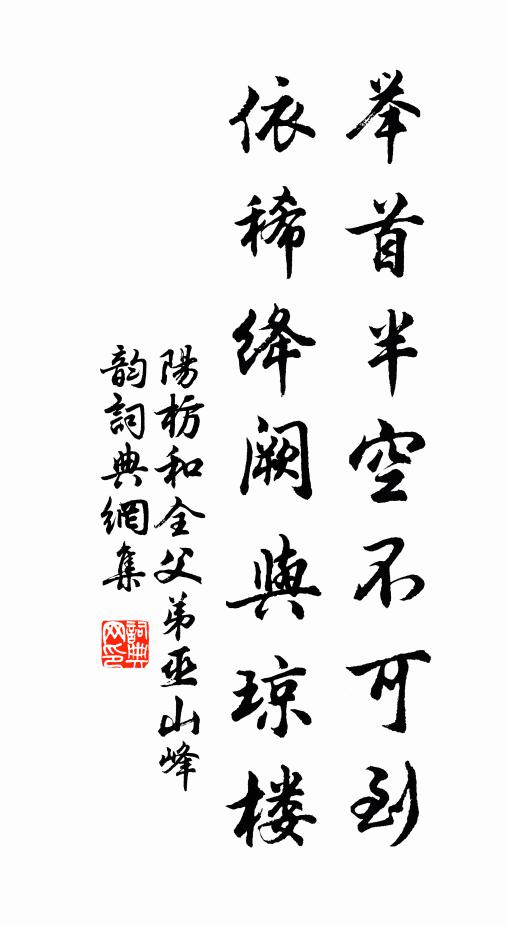 举首半空不可到
依稀绛阙與琼楼
陽枋和全父弟巫山峰
韵詞典網集
詞典网印